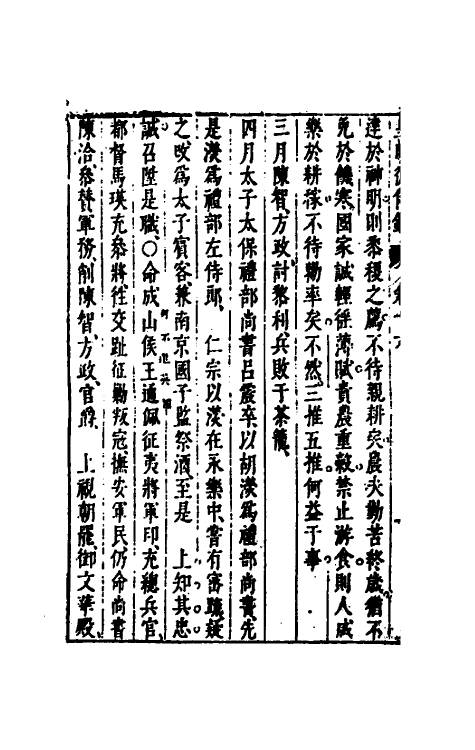 達於神明則黍稷之薦不待親耕矣農夫勤苦終歲猶不
免於饑寒國家誠輕徭薄賦貴農重穀禁止游食則人咸
樂於耕稼不待勸率矣不然三推五推何益于事
三月陳智方政討黎利兵敗于茶籠
四月太子太保禮部尚書呂震卒以胡濙為禮部尚書先
是濙為禮部左侍郎　仁宗以濙在永樂中嘗有密疏疑
之改為太子賓客兼南京國子監祭酒至是　上知其忠
誠召陞是職〇命成山侯王通佩征夷將軍印充總兵官
都督馬瑛充參將往交趾征勦叛冦撫安軍民仍命尚書
陳洽叅贊軍務削陳智方政官爵　上視朝罷御文華殿